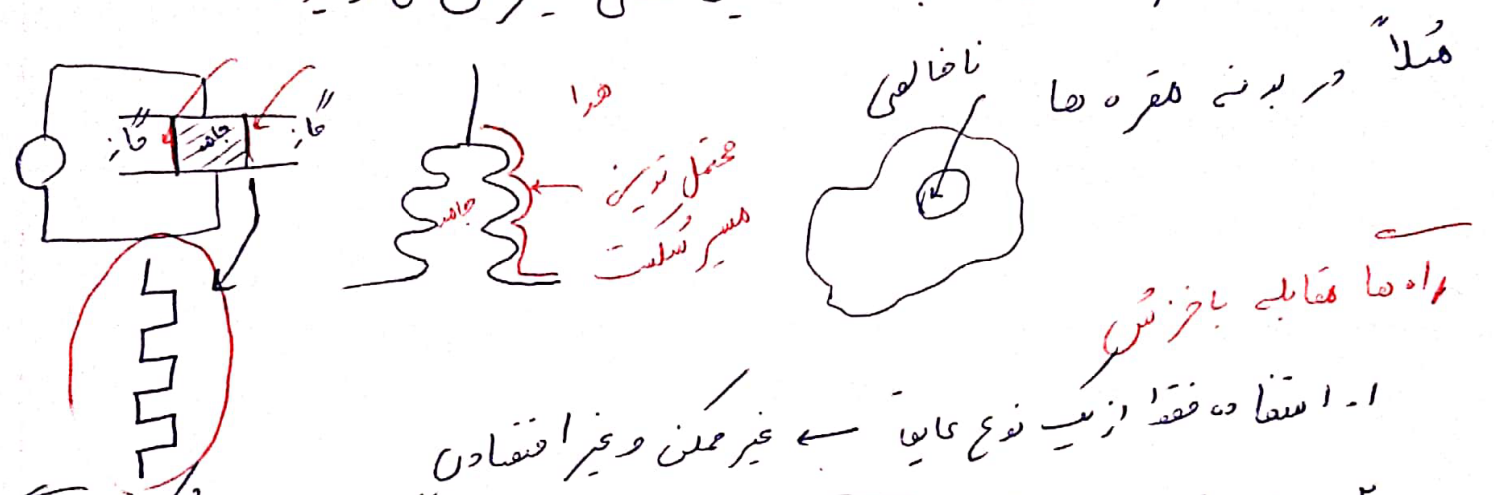 مثلاً در بدنه مقره ها
ناخالصی
هوا
محتمل ترین
مسیر شکست
جامد
"گاز"
جامد
"گاز"
راه ها مقابله با خزش
۱- استفاده فقط از یک نوع عایق ← غیر ممکن و غیر اقتصادی